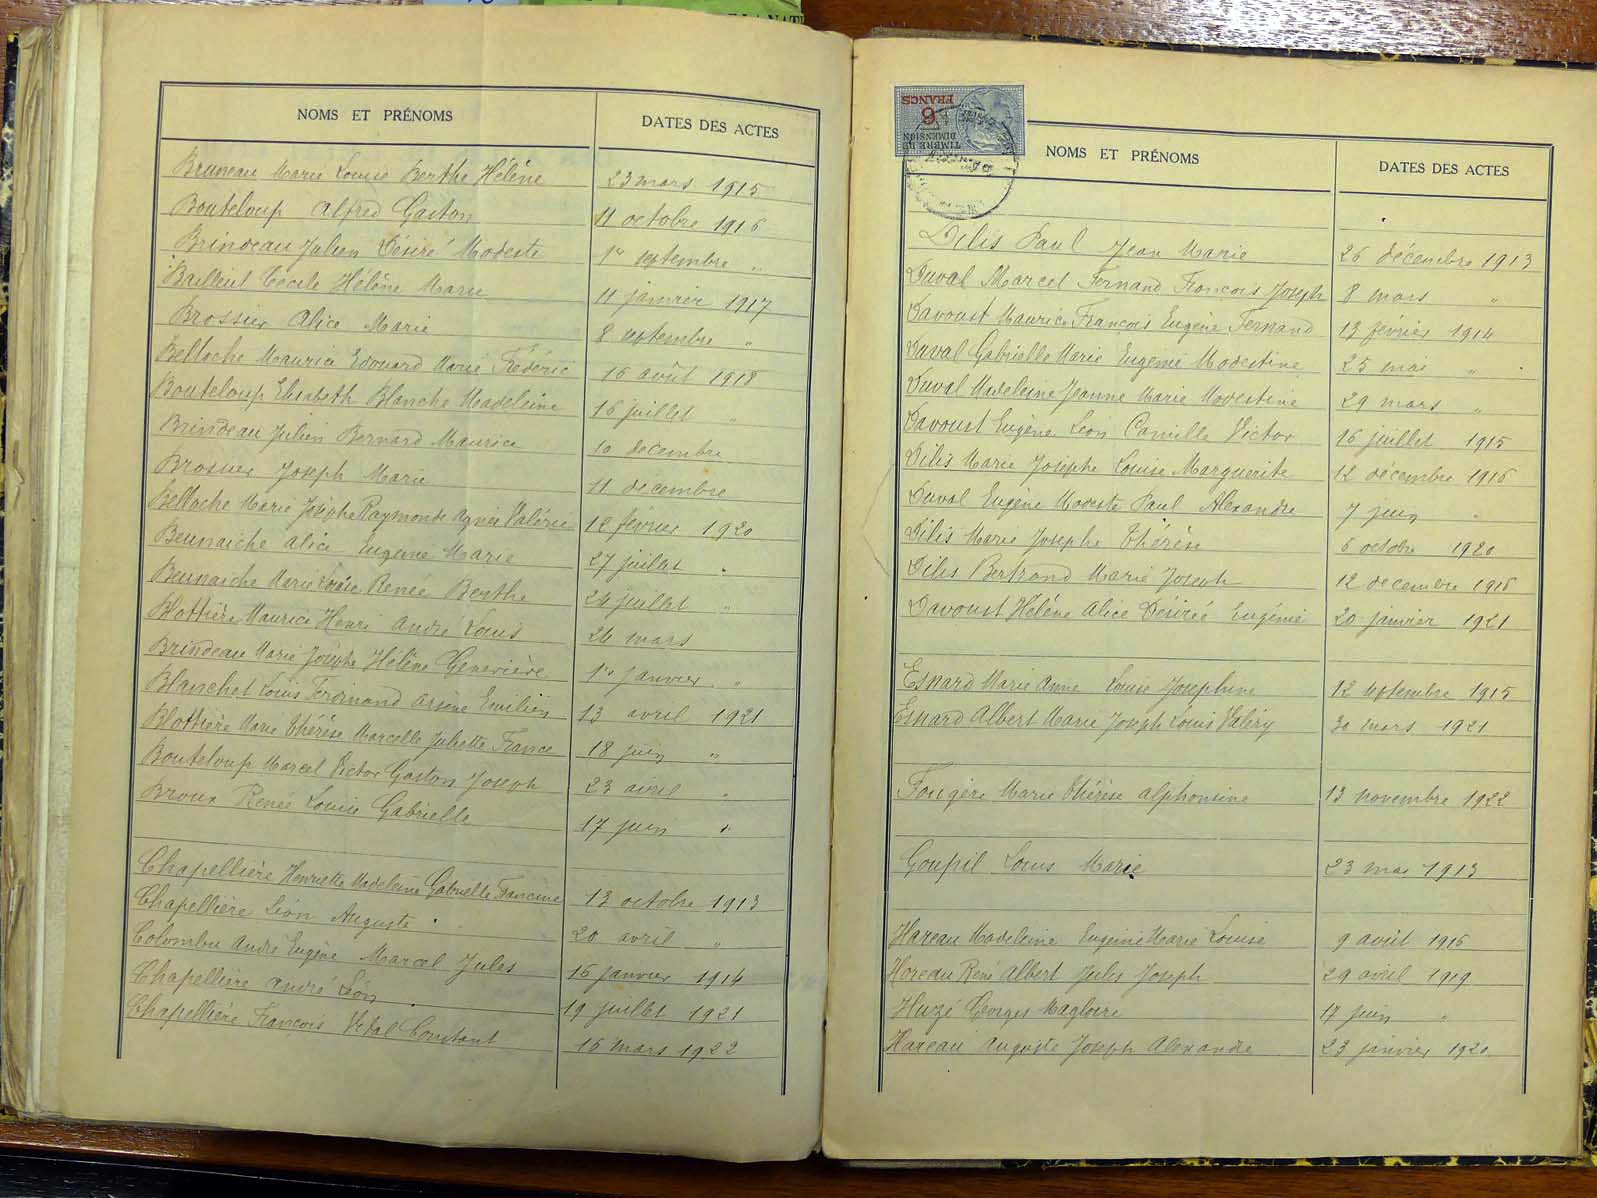 NOMS ET PRÉNOMS DATES DES ACTES
Bruneau Marie Louise Berthe Hélène 23 mars 1915
Bouteloup Alfred Gaston 11 octobre 1916
Brindeau Julien Désiré Modeste 1er septembre "
Bailleul Cécile Hélène Marie 11 janvier 1917
Brossier Alice Marie 8 septembre "
Belloche Maurice Edouard Marie Frédéric 16 août 1918
Bouteloup Elisabeth Blanche Madeleine 16 juillet "
Brindeau Julien Bernard Maurice 10 decembre
Brossier Joseph Marie 11 decembre
Belloche Marie Josèphe Raymonde Agnès Valérie 12 février 1920
Beunaiche Alice Eugenie Marie 27 juillet "
Beunaiche Marie Louise Renée Berthe 24 juillet "
Blottière Maurice Henri André Louis 24 mars
Brindeau Marie Josèphe Hélène Geneviève 1er janvier "
Blanchet Louis Ferdinand Arsène Emilien 13 avril 1921
Blottière Marie Thérèse Marcelle Juliette France 18 juin "
Bouteloup Marcel Victor Gaston Joseph 23 avril "
Broux Renée Louise Gabrielle 17 juin "
Chapellière Henriette Madeleine Gabrielle Francine 13 octobre 1913
Chapellière Léon Auguste 20 avril "
Colombu André Eugène Marcel Jules 16 janvier 1914
Chapellière André Léon 19 juillet 1921
Chapellière François Vital Constant 16 mars 1922
TIMBRE DE
DIMENSION
6
FRANCS
NOMS ET PRÉNOMS DATES DES ACTES
Dilis Paul Jean Marie 26 décembre 1913
Duval Marcel Fernand François Joseph 8 mars "
Davoust Maurice François Eugène Fernand 13 février 1914
Duval Gabrielle Marie Eugenie Modestine 25 mai "
Duval Madeleine Jeanne Marie Modestine 29 mars "
Davoust Eugène Léon Camille Victor 16 juillet 1915
Dilis Marie Josèphe Louise Marguerite 12 décembre 1916
Duval Eugène Modeste Paul Alexandre 7 juin "
Dilis Marie Josephe Thérèse 6 octobre 1920
Dilis Bertrand Marie Joseph 12 decembre 1916
Davoust Hélène Alice Désirée Eugénie 20 janvier 1921
Esnard Marie Anne Louise Josephine 12 septembre 1915
Esnard Albert Marie Joseph Louis Valéry 30 mars 1921
Fougère Marie Thérèse Alphonsine 13 novembre 1922
Goupil Louis Marie 23 mai 1913
Hareau Madeleine Eugenie Marie Louise 9 août 1916
Horeau René Albert Jules Joseph 29 avril 1919
Huzé Georges Magloire 17 juin "
Hareau Auguste Joseph Alexandre 23 janvier 1920